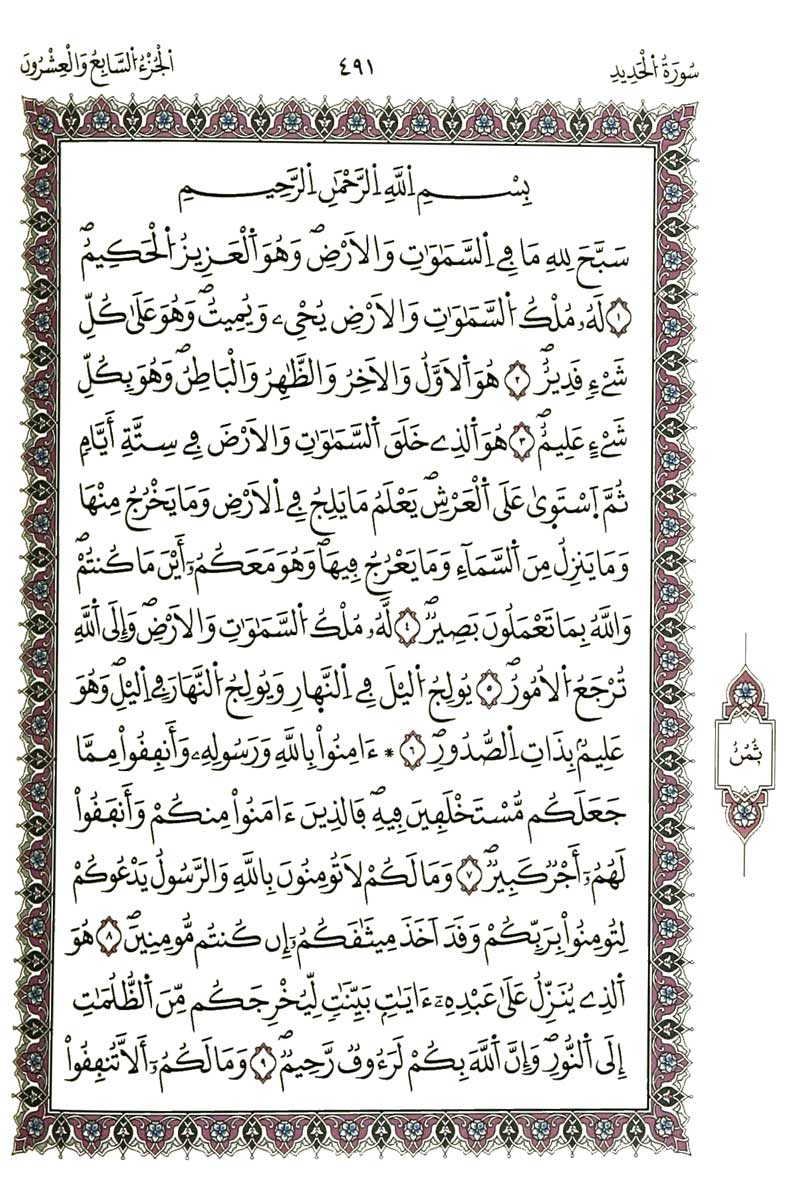 سُورَةُ الْحَدِيدِ
٤٩١
الْجُزْءُ السَّابِعُ وَالْعِشْرُونَ
بِسْمِ اِللَّهِ اِلرَّحْمَٰنِ اِلرَّحِيمِ
سَبَّحَ لِلهِ مَا فِے اِلسَّمَٰوَٰتِ وَالَارْضِۖ وَهُوَ اَلْعَزِيزُ الْحَكِيمُۖ
١ لَهُۥ مُلْكُ السَّمَٰوَٰتِ وَالَارْضِ يُحْےِۦ وَيُمِيتُۖ وَهُوَ عَلَىٰ كُلِّ
شَےْءٖ قَدِيرٌۖ ٢ هُوَ اَلَاوَّلُ وَالَاخِرُ وَالظَّٰهِرُ وَالْبَاطِنُۖ وَهُوَ بِكُلِّ
شَےْءٍ عَلِيمٌۖ ٣ هُوَ اَلذِے خَلَقَ اَلسَّمَٰوَٰتِ وَالَارْضَ فِے سِتَّةِ أَيَّامٖ
ثُمَّ اَسْتَوَىٰ عَلَى اَلْعَرْشِۖ يَعْلَمُ مَا يَلِجُ فِے اِلَارْضِ وَمَا يَخْرُجُ مِنْهَا
وَمَا يَنزِلُ مِنَ اَلسَّمَآءِ وَمَا يَعْرُجُ فِيهَاۖ وَهُوَ مَعَكُمُۥٓ أَيْنَ مَا كُنتُمْۖ
وَاللَّهُ بِمَا تَعْمَلُونَ بَصِيرٌۖ ٤ لَّهُۥ مُلْكُ السَّمَٰوَٰتِ وَالَارْضِۖ وَإِلَى اَللَّهِ
تُرْجَعُ الُامُورُۖ ٥ يُولِجُ اليْلَ فِے اِلنَّهَارِ وَيُولِجُ النَّهَارَ فِے اِليْلِۖ وَهُوَ
عَلِيمُۢ بِذَاتِ اِلصُّدُورِۖ ٦ * ءَامِنُواْ بِاللَّهِ وَرَسُولِهِۦ وَأَنفِقُواْ مِمَّا
جَعَلَكُم مُّسْتَخْلَفِينَ فِيهِۖ فَالذِينَ ءَامَنُواْ مِنكُمْ وَأَنفَقُواْ
لَهُمُۥٓ أَجْرٌ كَبِيرٌۖ ٧ وَمَا لَكُمْ لَا تُومِنُونَ بِاللَّهِ وَالرَّسُولُ يَدْعُوكُمْ
لِتُومِنُواْ بِرَبِّكُمْ وَقَدَ اَخَذَ مِيثَٰقَكُمُۥٓ إِن كُنتُم مُّومِنِينَۖ ٨ هُوَ
اَلذِے يُنَزِّلُ عَلَىٰ عَبْدِهِۦٓ ءَايَٰتِۢ بَيِّنَٰتٖ لِّيُخْرِجَكُم مِّنَ اَلظُّلُمَٰتِ
إِلَى اَلنُّورِۖ وَإِنَّ اَللَّهَ بِكُمْ لَرَءُوفٞ رَّحِيمٌۖ ٩ وَمَا لَكُمُۥٓ أَلَّا تُنفِقُواْ
ثُمُنُ